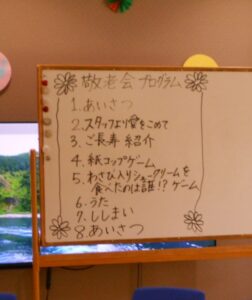 敬老会プログラム
1.あいさつ
2.スタッフより愛をこめて
3.ご長寿 紹介
4.紙コップゲーム
5.わさび入りシュークリームを
食べたのは誰!?ゲーム
6.うた
7.ししまい
8.あいさつ